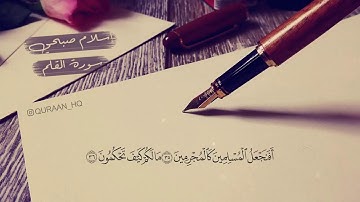 اسلام صبحي
سورة القلم
@QURAAN_HQ
أَفَنَجْعَلُ الْمُسْلِمِينَ كَالْمُجْرِمِينَ ﴿٣٥﴾ مَا لَكُمْ كَيْفَ تَحْكُمُونَ ﴿٣٦﴾